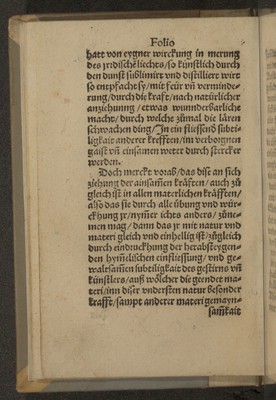 Folio
hatt von eygner wirckung in merung
des yrdische liechts/so künstlich durch
den dunst sublimirt vnd distilliert wirt
so entpfacht sy/mit feür vñ verminde-
rung/durch die krafft/nach natürlicher
anzichunng/etwas wunnderbarliche
macht/durch welche zümal die lären
schwachen ding/In ein fliessend subti-
ligkait anderer krefften/im verborgnen
gaist vñ einsamen weter durch stercker
werden.
Doch merckt vorab/das dise an sich
ziehung der ainsamen kräfften/auch zü
gleich ist in allen materlichen kräfften/
also das sie durch alle übung vnd wür-
ckhung yr/nymer ichts anders/züne-
men mag/dann das yr mit natur vnd
materi gleich vnd einhellig ist/zügleich
durch eindruckhung der herabsteygen-
den hymelischen einfliessung/vnd ge-
waltsamen subtiligkait des gestirns vñ
künstlers/auß wölcher die geendet ma-
teri/inn diser vndersten natur besonder
krafft/sampt anderer materi gemayn-
samkait